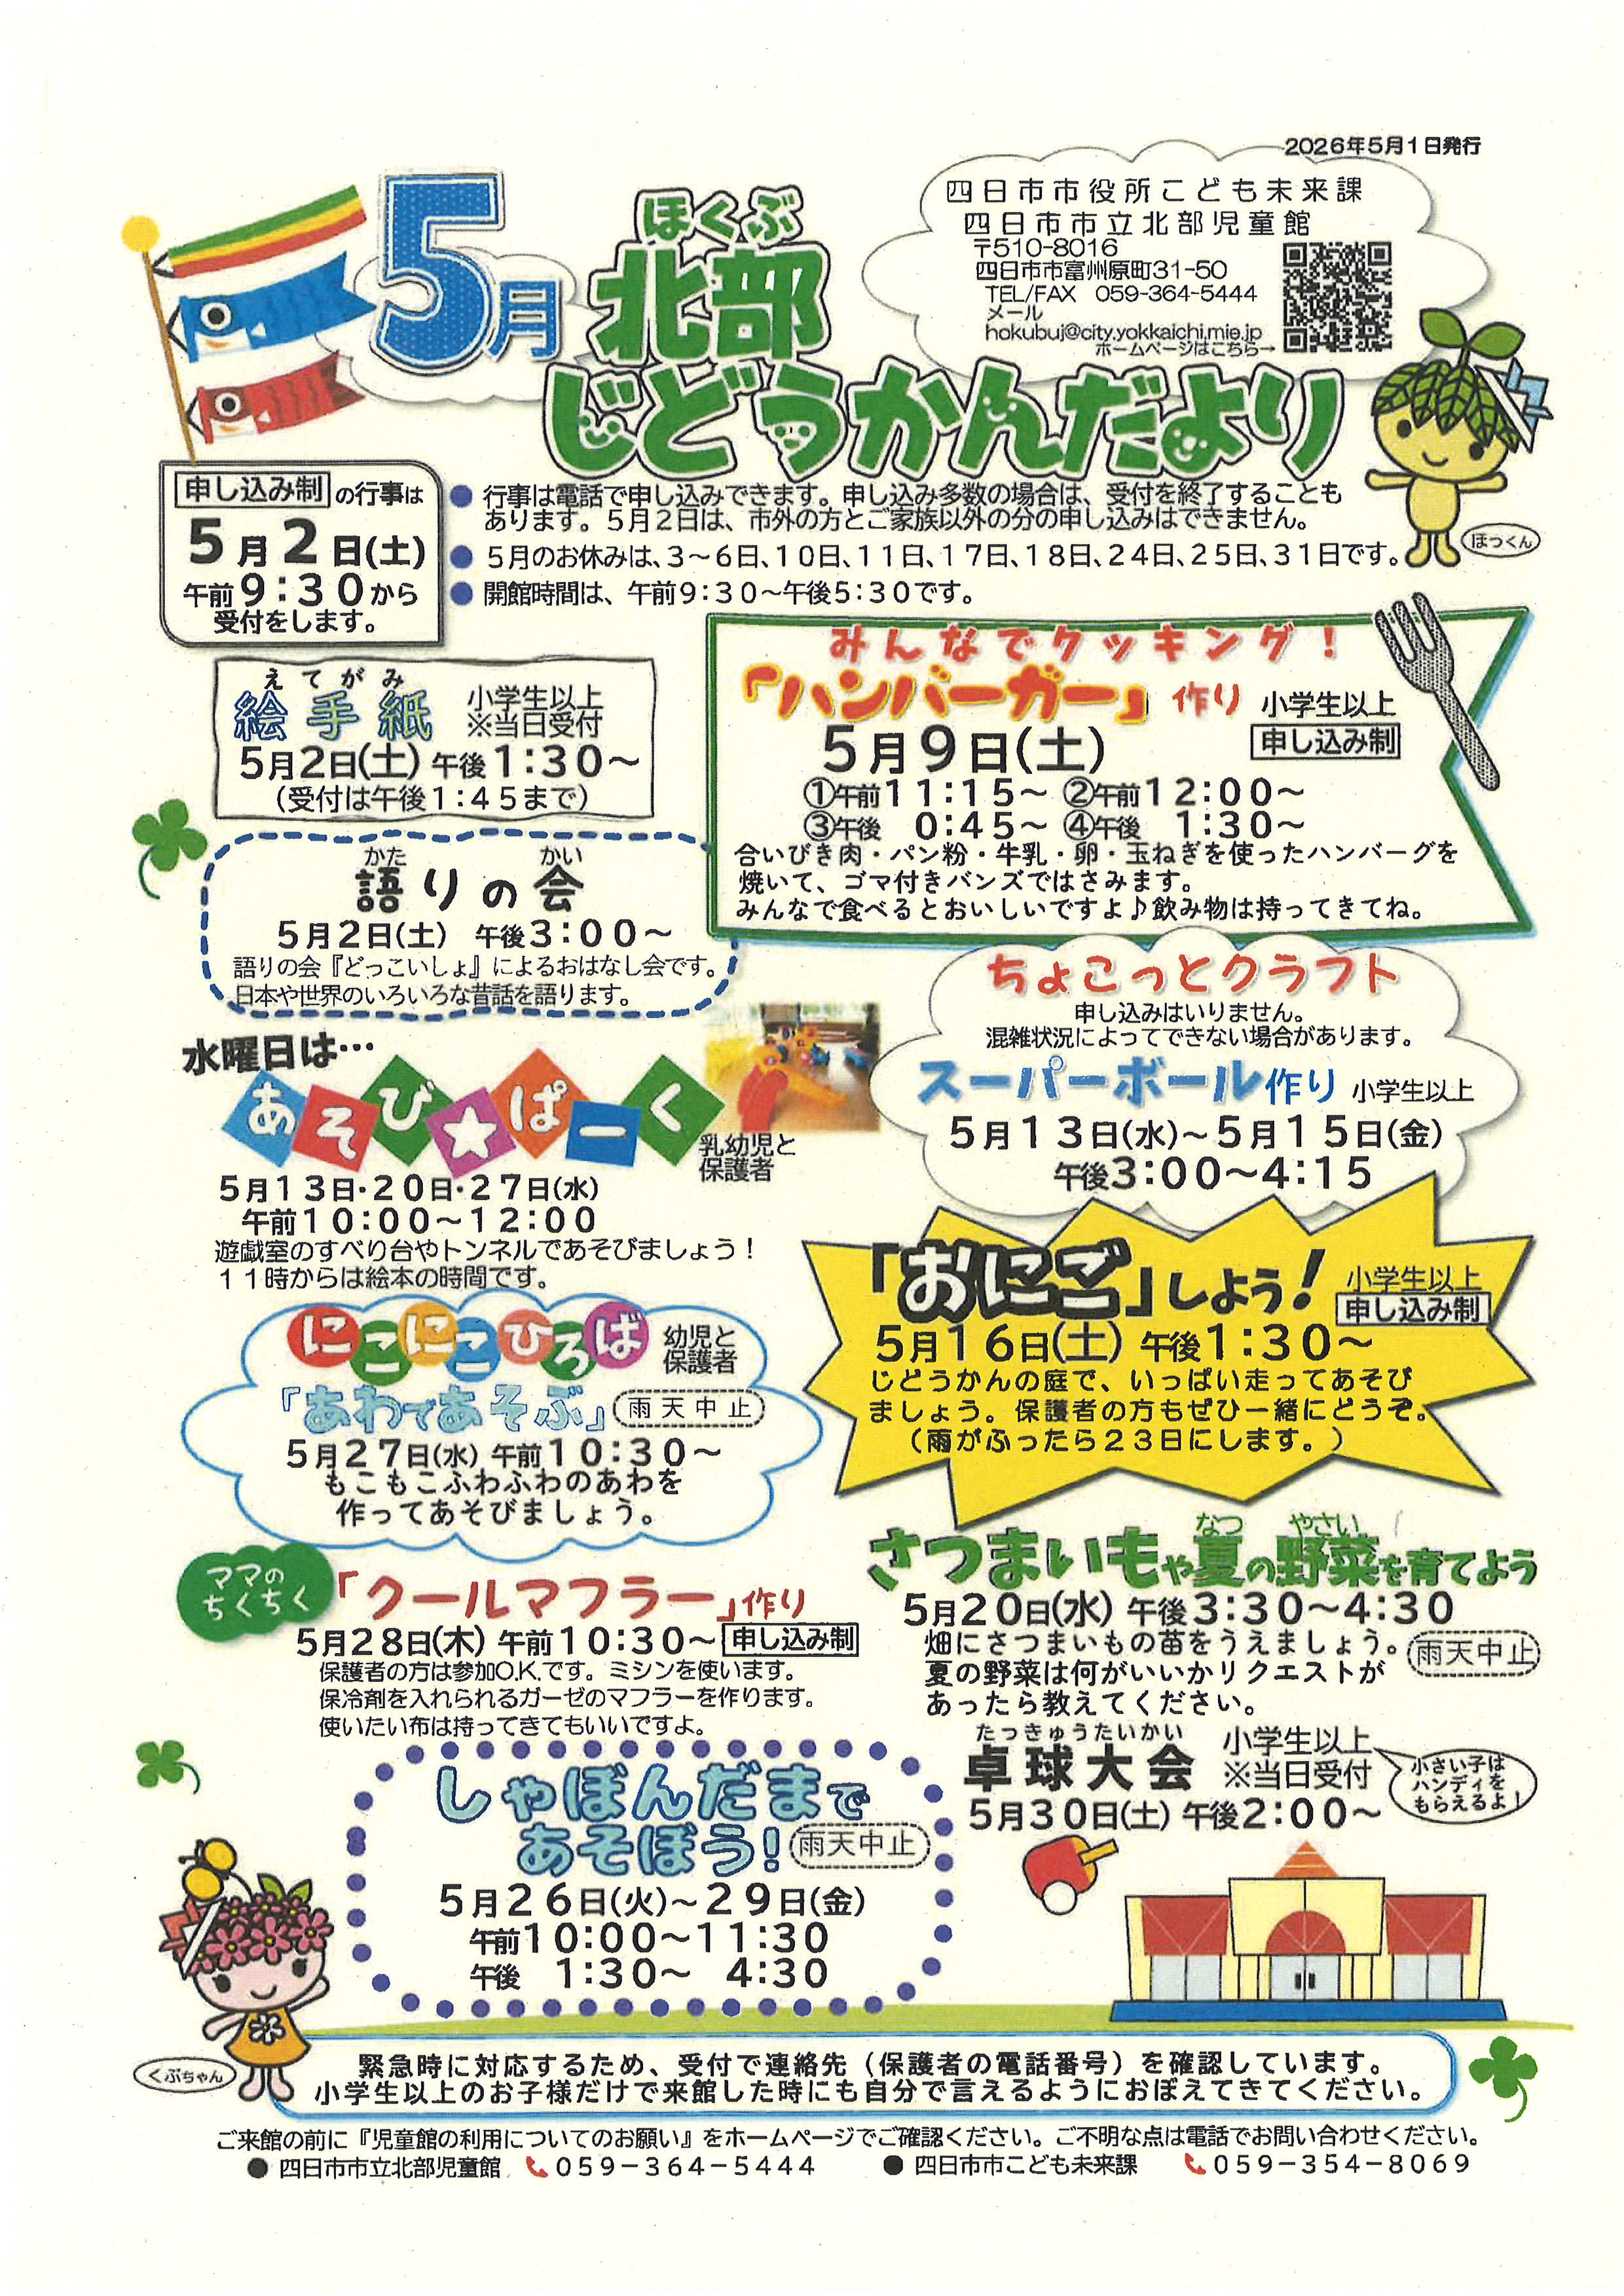 2026年5月1日発行
四日市市役所こども未来課
四日市市立北部児童館
〒510-8016
四日市市富州原町31-50
TEL/FAX 059-364-5444
メール
hokubuj@city.yokkaichi.mie.jp
ホームページはこちら→
5月
ほくぶ
北部
じどうかんだより
ほっくん
申し込み制の行事は
5月2日(土)
午前9:30から
受付をします。
● 行事は電話で申し込みできます。申し込み多数の場合は、受付を終了することも
あります。5月2日は、市外の方とご家族以外の分の申し込みはできません。
● 5月のお休みは、3～6日、10日、11日、17日、18日、24日、25日、31日です。
● 開館時間は、午前9:30～午後5:30です。
えてがみ
絵手紙
小学生以上
※当日受付
5月2日(土) 午後1:30～
(受付は午後1:45まで)
みんなでクッキング!
「ハンバーガー」作り 小学生以上
5月9日(土) 申し込み制
①午前11:15～ ②午前12:00～
③午後 0:45～ ④午後 1:30～
合いびき肉・パン粉・牛乳・卵・玉ねぎを使ったハンバーグを
焼いて、ゴマ付きバンズではさみます。
みんなで食べるとおいしいですよ♪飲み物は持ってきてね。
かた かい
語りの会
5月2日(土) 午後3:00～
語りの会『どっこいしょ』によるおはなし会です。
日本や世界のいろいろな昔話を語ります。
ちょこっとクラフト
申し込みはいりません。
混雑状況によってできない場合があります。
スーパーボール作り 小学生以上
5月13日(水)～5月15日(金)
午後3:00～4:15
水曜日は…
あそび★ぱーく
乳幼児と
保護者
5月13日・20日・27日(水)
午前10:00～12:00
遊戯室のすべり台やトンネルであそびましょう!
11時からは絵本の時間です。
「おにご」しよう! 小学生以上
申し込み制
5月16日(土) 午後1:30～
じどうかんの庭で、いっぱい走ってあそび
ましょう。保護者の方もぜひ一緒にどうぞ。
(雨がふったら23日にします。)
にこにこひろば
幼児と
保護者
「あわであそぶ」 雨天中止
5月27日(水) 午前10:30～
もこもこふわふわのあわを
作ってあそびましょう。
なつ やさい
さつまいもや夏の野菜を育てよう
5月20日(水) 午後3:30～4:30
畑にさつまいもの苗をうえましょう。
雨天中止
夏の野菜は何がいいかリクエストが
あったら教えてください。
ママの
ちくちく
「クールマフラー」作り
5月28日(木) 午前10:30～ 申し込み制
保護者の方は参加O.K.です。ミシンを使います。
保冷剤を入れられるガーゼのマフラーを作ります。
使いたい布は持ってきてもいいですよ。
たっきゅうたいかい
卓球大会
小学生以上
※当日受付
5月30日(土) 午後2:00～
小さい子は
ハンディを
もらえるよ!
しゃぼんだまで
あそぼう! 雨天中止
5月26日(火)～29日(金)
午前10:00～11:30
午後 1:30～ 4:30
くぶちゃん
緊急時に対応するため、受付で連絡先(保護者の電話番号)を確認しています。
小学生以上のお子様だけで来館した時にも自分で言えるようにおぼえてきてください。
ご来館の前に『児童館の利用についてのお願い』をホームページでご確認ください。ご不明な点は電話でお問い合わせください。
● 四日市市立北部児童館 059-364-5444 ● 四日市市こども未来課 059-354-8069